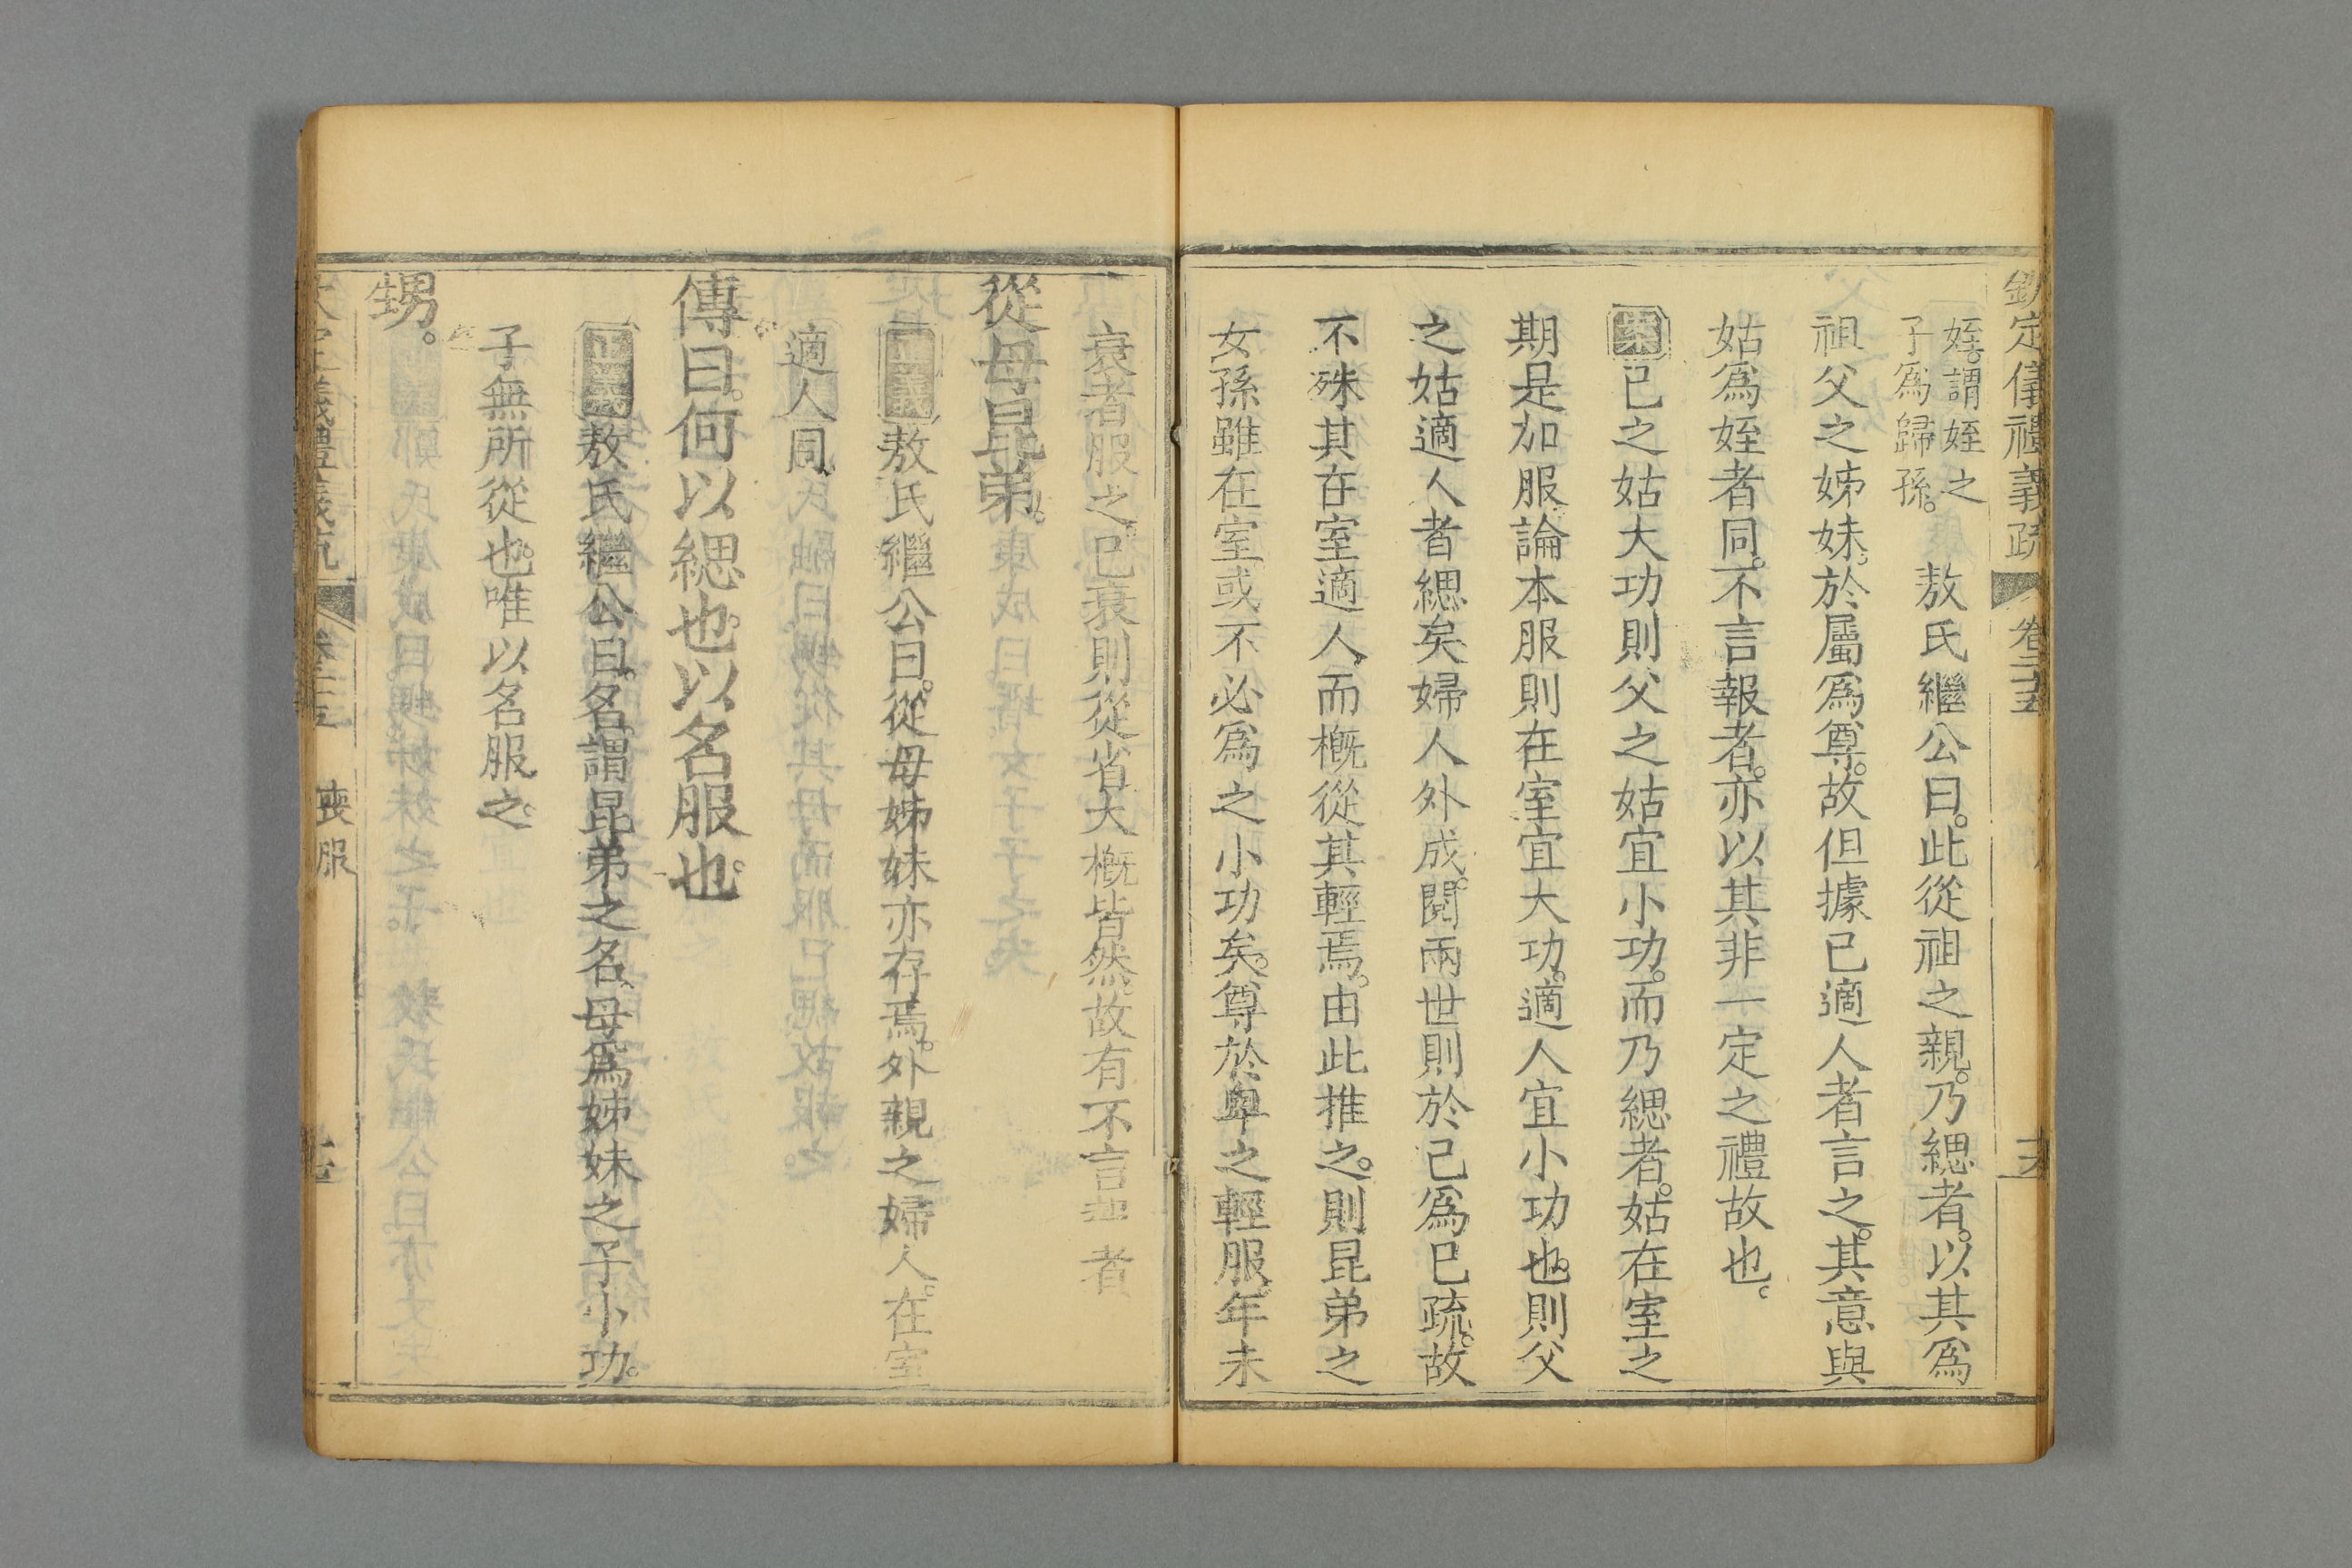 欽定儀禮義疏 卷二十五
姪。謂姪之
子為歸孫。
敖氏繼公曰。此從祖之親。乃緦者。以其爲
祖父之姊妹。於屬爲尊。故但據已適人者言之。其意與
姑爲姪者同。不言報者。亦以其非一定之禮故也。
案己之姑大功則父之姑宜小功。而乃緦者。姑在室之
期是加服論本服則在室宜大功。適人宜小功也。則父
之姑適人者緦矣婦人外成。閱兩世則於己爲已疏。故
不殊其在室適人。而槪從其輕焉。由此推之。則昆弟之
女孫雖在室或不必爲之小功矣。尊於卑之輕服。年未
衰者服之。已衰則從省大槪皆然。故有不言報者
從母昆弟。
正義敖氏繼公曰。從母姊妹亦存焉。外親之婦人。在室
適人同。
傳曰。何以緦也。以名服也。
正義敖氏繼公曰。名。謂昆弟之名。母爲姊妹之子小功。
子無所從也。唯以名服之。
甥。
欽定儀禮義疏 卷二十五 喪服